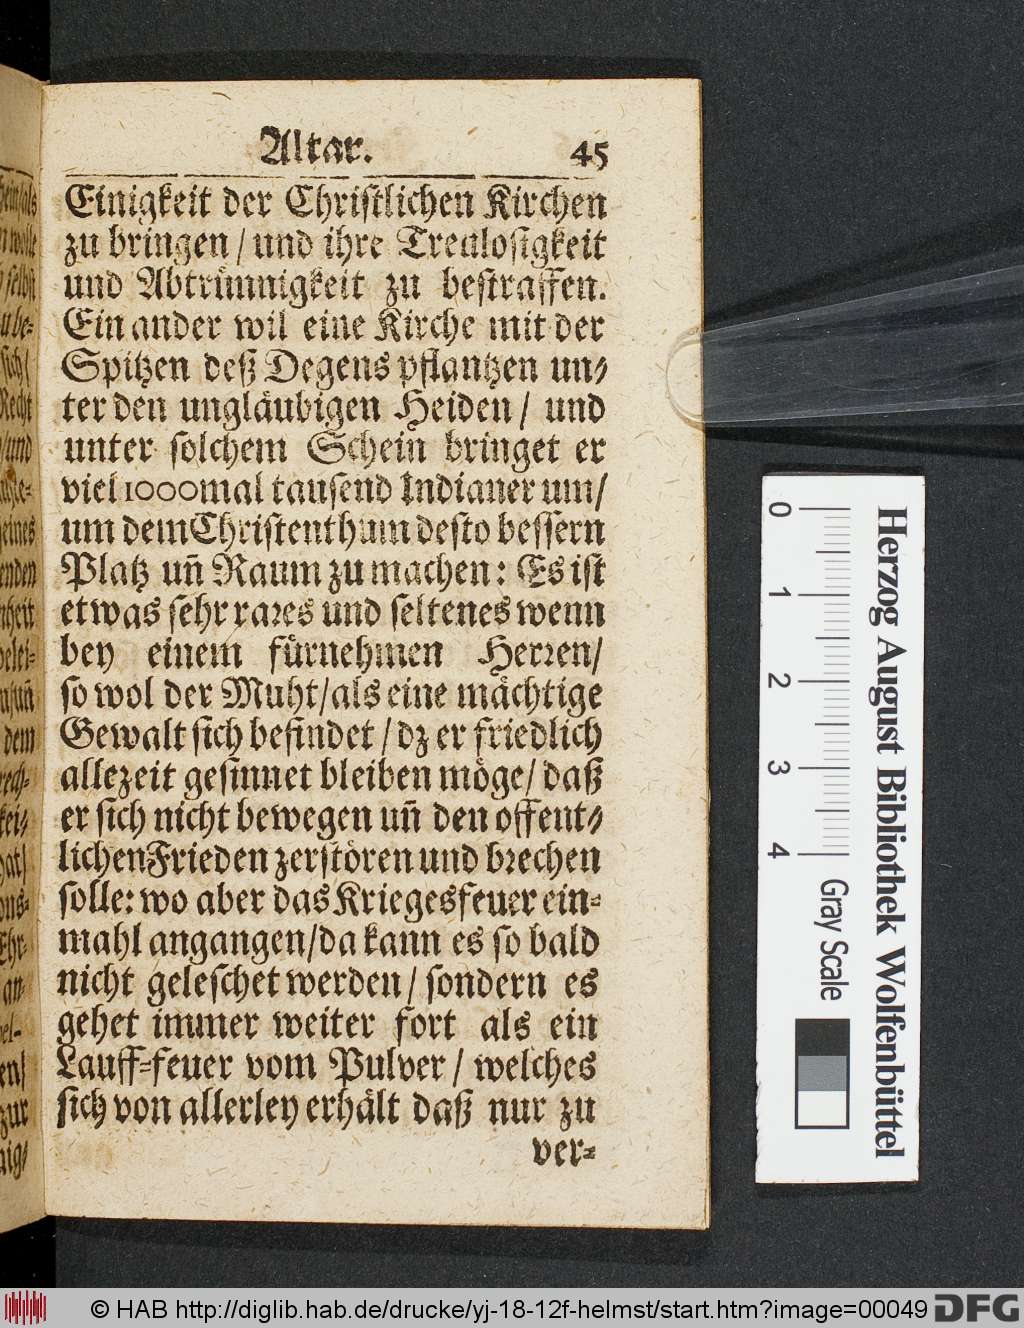 Altar. 45
Einigkeit der Christlichen Kirchen
zu bringen / und ihre Treulosigkeit
und Abtrünnigkeit zu bestraffen.
Ein ander wil eine Kirche mit der
Spitzen deß Degens pflantzen un-
ter den ungläubigen Heiden / und
unter solchem Schein bringet er
viel 1000mal tausend Indianer um /
um dem Christenthum desto bessern
Platz uñ Raum zu machen: Es ist
etwas sehr rares und seltenes wenn
bey einem fürnehmen Herren /
so wol der Muht / als eine mächtige
Gewalt sich befindet / dz er friedlich
allezeit gesinnet bleiben möge / daß
er sich nicht bewegen uñ den offent-
lichen Frieden zerstören und brechen
solle: wo aber das Kriegesfeuer ein-
mahl angangen / da kann es so bald
nicht geleschet werden / sondern es
gehet immer weiter fort als ein
Lauff-feuer vom Pulver / welches
sich von allerley erhält daß nur zu
ver-
0 1 2 3 4
Gray Scale
Herzog August Bibliothek Wolfenbüttel
© HAB http://diglib.hab.de/drucke/yj-18-12f-helmst/start.htm?image=00049
DFG